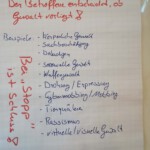 Der Betroffene entscheidet, ob
Gewalt vorliegt
Beispiele: - Körperliche Gewalt
- Sachbeschädigung
- Beleidigen
- sexuelle Gewalt
- Waffengewalt
- Drohung / Erpressung
- Cybermobbing / Mobbing
- Tierquälerei
- Rassismus
- virtuelle / visuelle Gewalt
Bei "Stopp"
ist Schluss!